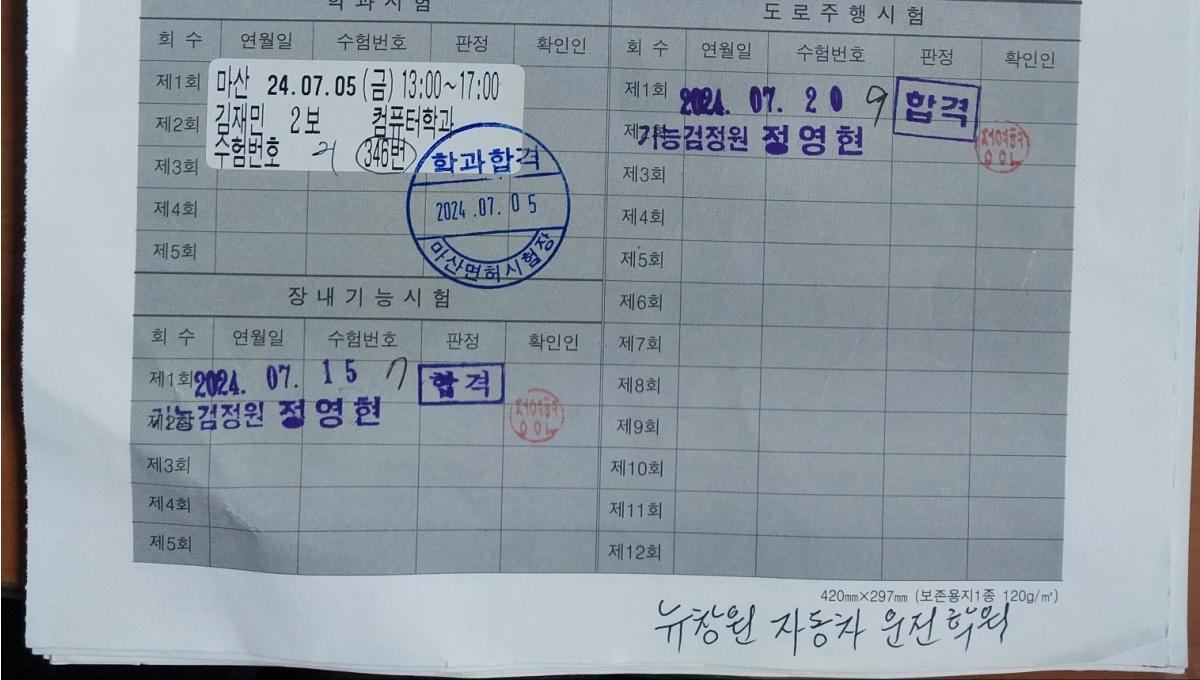 학과시험
회 수 연월일 수험번호 판정 확인인
제1회
마산 24.07.05(금) 13:00~17:00
제2회
김재민 2보 컴퓨터학과
수험번호 346번
제3회
학과합격
2024.07.05
마산면허시험장
제4회
제5회
장내기능시험
회 수 연월일 수험번호 판정 확인인
제1회 2024. 07. 15 7 합격
제2회 기능검정원 정영현
제3회
제4회
제5회
도로주행시험
회 수 연월일 수험번호 판정 확인인
제1회 2024. 07. 20 9 합격
기능검정원 정영현
제3회
제4회
제5회
제6회
제7회
제8회
제9회
제10회
제11회
제12회
420㎜×297㎜ (보존용지1종 120g/㎡)
뉴창원 자동차 운전학원